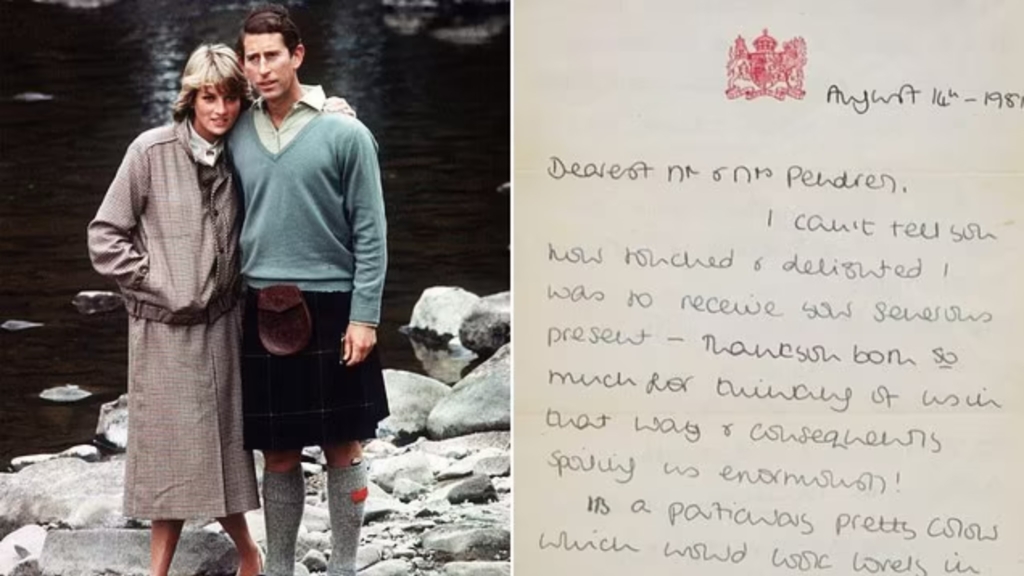 August 14th - 1981
Dearest Mr & Mrs Pendrey,
I can't tell you
how touched & delighted I
was to receive your generous
present - Thank you both so
much for thinking of us in
that way & consequently
spoiling us enormously!
Its a particularly pretty colour
which would look lovely in